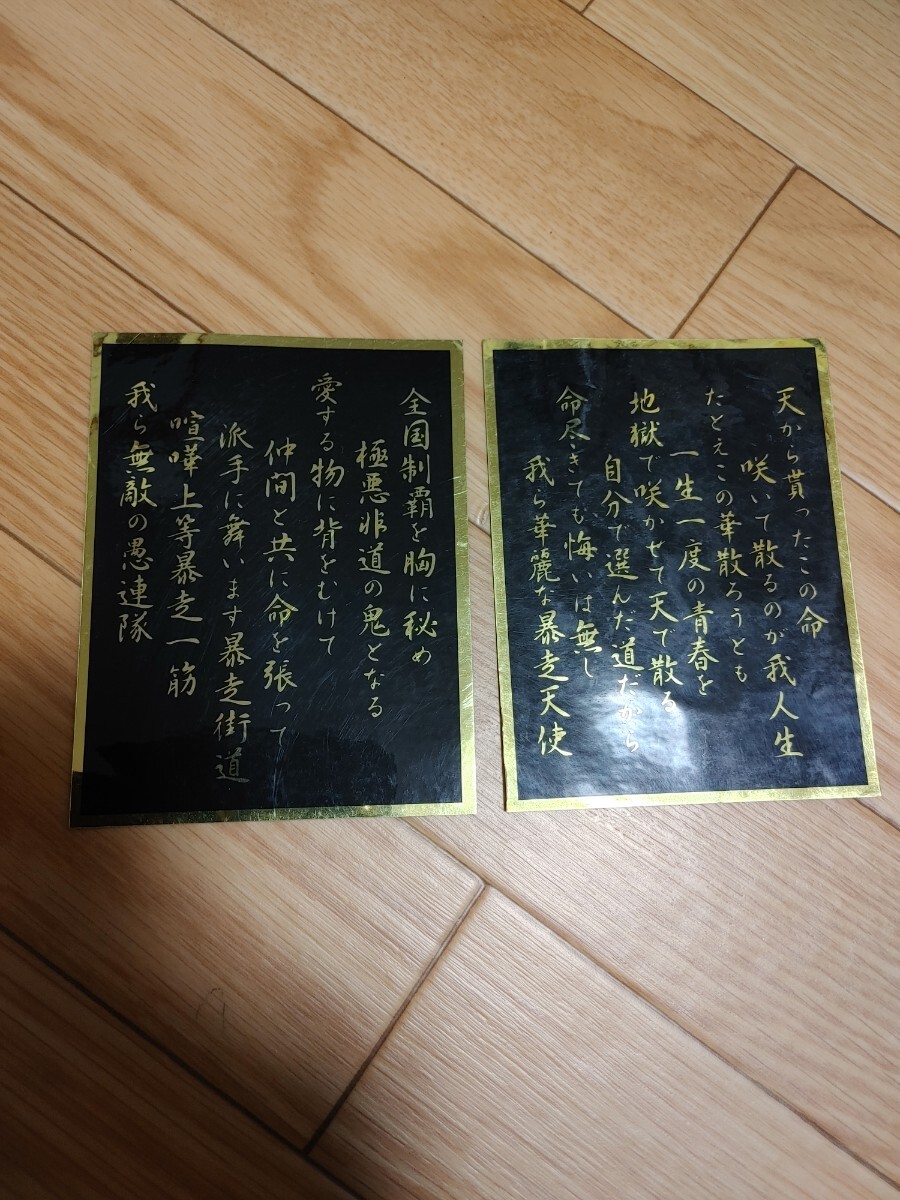 全国制覇を胸に秘め
極悪非道の鬼となる
愛する物に背をむけて
仲間と共に命を張って
派手に舞います暴走街道
喧嘩上等暴走一筋
我ら無敵の愚連隊
天から貰ったこの命
咲いて散るのが我人生
たとえこの華散ろうとも
一生一度の青春を
地獄で咲かせて天で散る
自分で選んだ道だから
命尽きても悔いは無し
我ら華麗な暴走天使